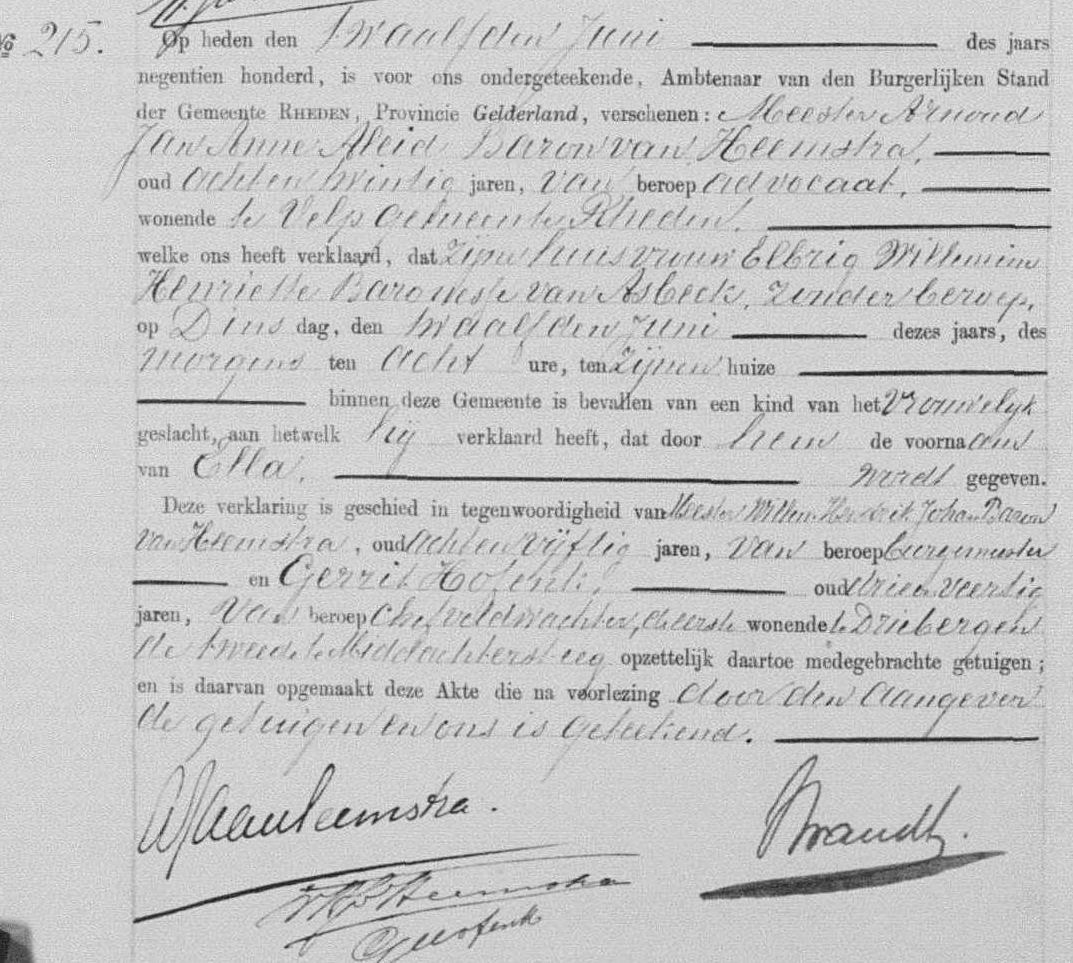 No 215.
Op heden den twaalfden Juni des jaars
negentien honderd, is voor ons ondergeteekende, Ambtenaar van den Burgerlijken Stand
der Gemeente RHEDEN, Provincie Gelderland, verschenen: Meester Arnoud
Jan Anne Aleid Baron van Heemstra,
oud achten twintig jaren, van beroep advocaat,
wonende te Velp Gemeente Rheden.
welke ons heeft verklaard, dat zijne huisvrouw Elbrig Willemine
Henriette Baronesse van Asbeck, zonder beroep,
op Dinsdag, den twaalfden Juni dezes jaars, des
morgens ten acht ure, ten zijnen huize
binnen deze Gemeente is bevallen van een kind van het vrouwelijk
geslacht, aan hetwelk hij verklaard heeft, dat door hem de voornaam
van Ella. wordt gegeven.
Deze verklaring is geschied in tegenwoordigheid van Meester Willem Hendrik Johan Baron
van Heemstra, oud achtenvijftig jaren, van beroep burgemeester
en Gerrit Hofenk, oud drieenveertig
jaren, van beroep chefveldwachter, de eerste wonende te Driebergen
de tweede te Middachtersteeg opzettelijk daartoe medegebrachte getuigen;
en is daarvan opgemaakt deze Akte die na voorlezing door den aangever
de getuigen en ons is geteekend.
AJAvanHeemstra.
Brandt.
WHJvHeemstra
GHofenk